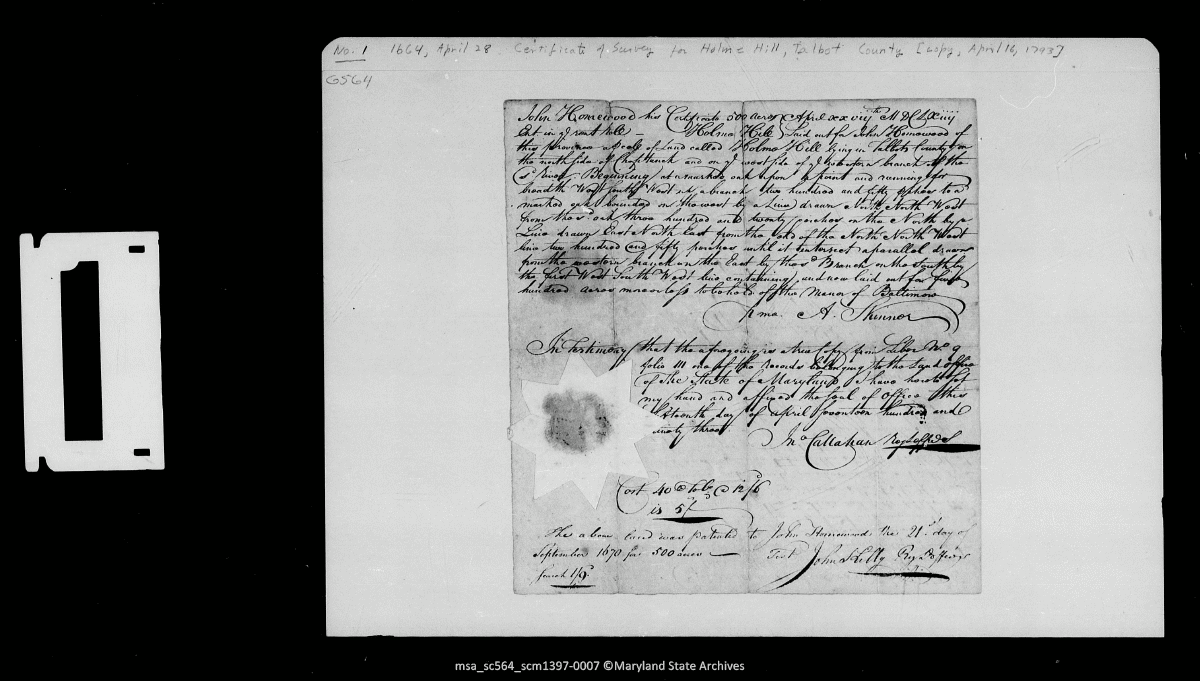 No. 1 1664, April 28 Certificate of Survey for Holme Hill, Talbot County [copy, April 16, 1793]
G564
John Homewood his Certificate 500 acres April xxviijth MDCLXiiij
Holms Hill Laid out for John Homewood of
this province a parcell of Land called Holms Hill lying in Talbots County on
the north side of Choptanck and on ye west side of ye western branch of the
sd River. Beginning at a marked oak upon a point and running for
breadth West South West up a branch two hundred and fifty perches to a
marked oak bounded on the west by a Line drawn North North West
from the sd oak three hundred and twenty perches on the North by a
Line drawn East North East from the end of the North North West
line two hundred and fifty perches untill it intersect a parallel drawn
from the western branch on the East by the sd Branch on the South by
the first West South West line containing and now laid out for five
hundred acres more or less to be held of the Manor of Baltimore
A. Skinner
In Testimony that the aforegoing is a true Copy from Liber No. 9
folio 111 one of the records belonging to the Land office
of The State of Maryland I have hereto set
my hand and affixed the seal of Office this
sixteenth day of april seventeen hundred and
ninety three
Jno Callahan
Cost 40 Tobo @ 12/6
is 5/
The above land was patented to John Homewood the 21st day of
September 1670 for 500 acres Test John Kilty
Search 1/9
msa_sc564_scm1397-0007 ©Maryland State Archives